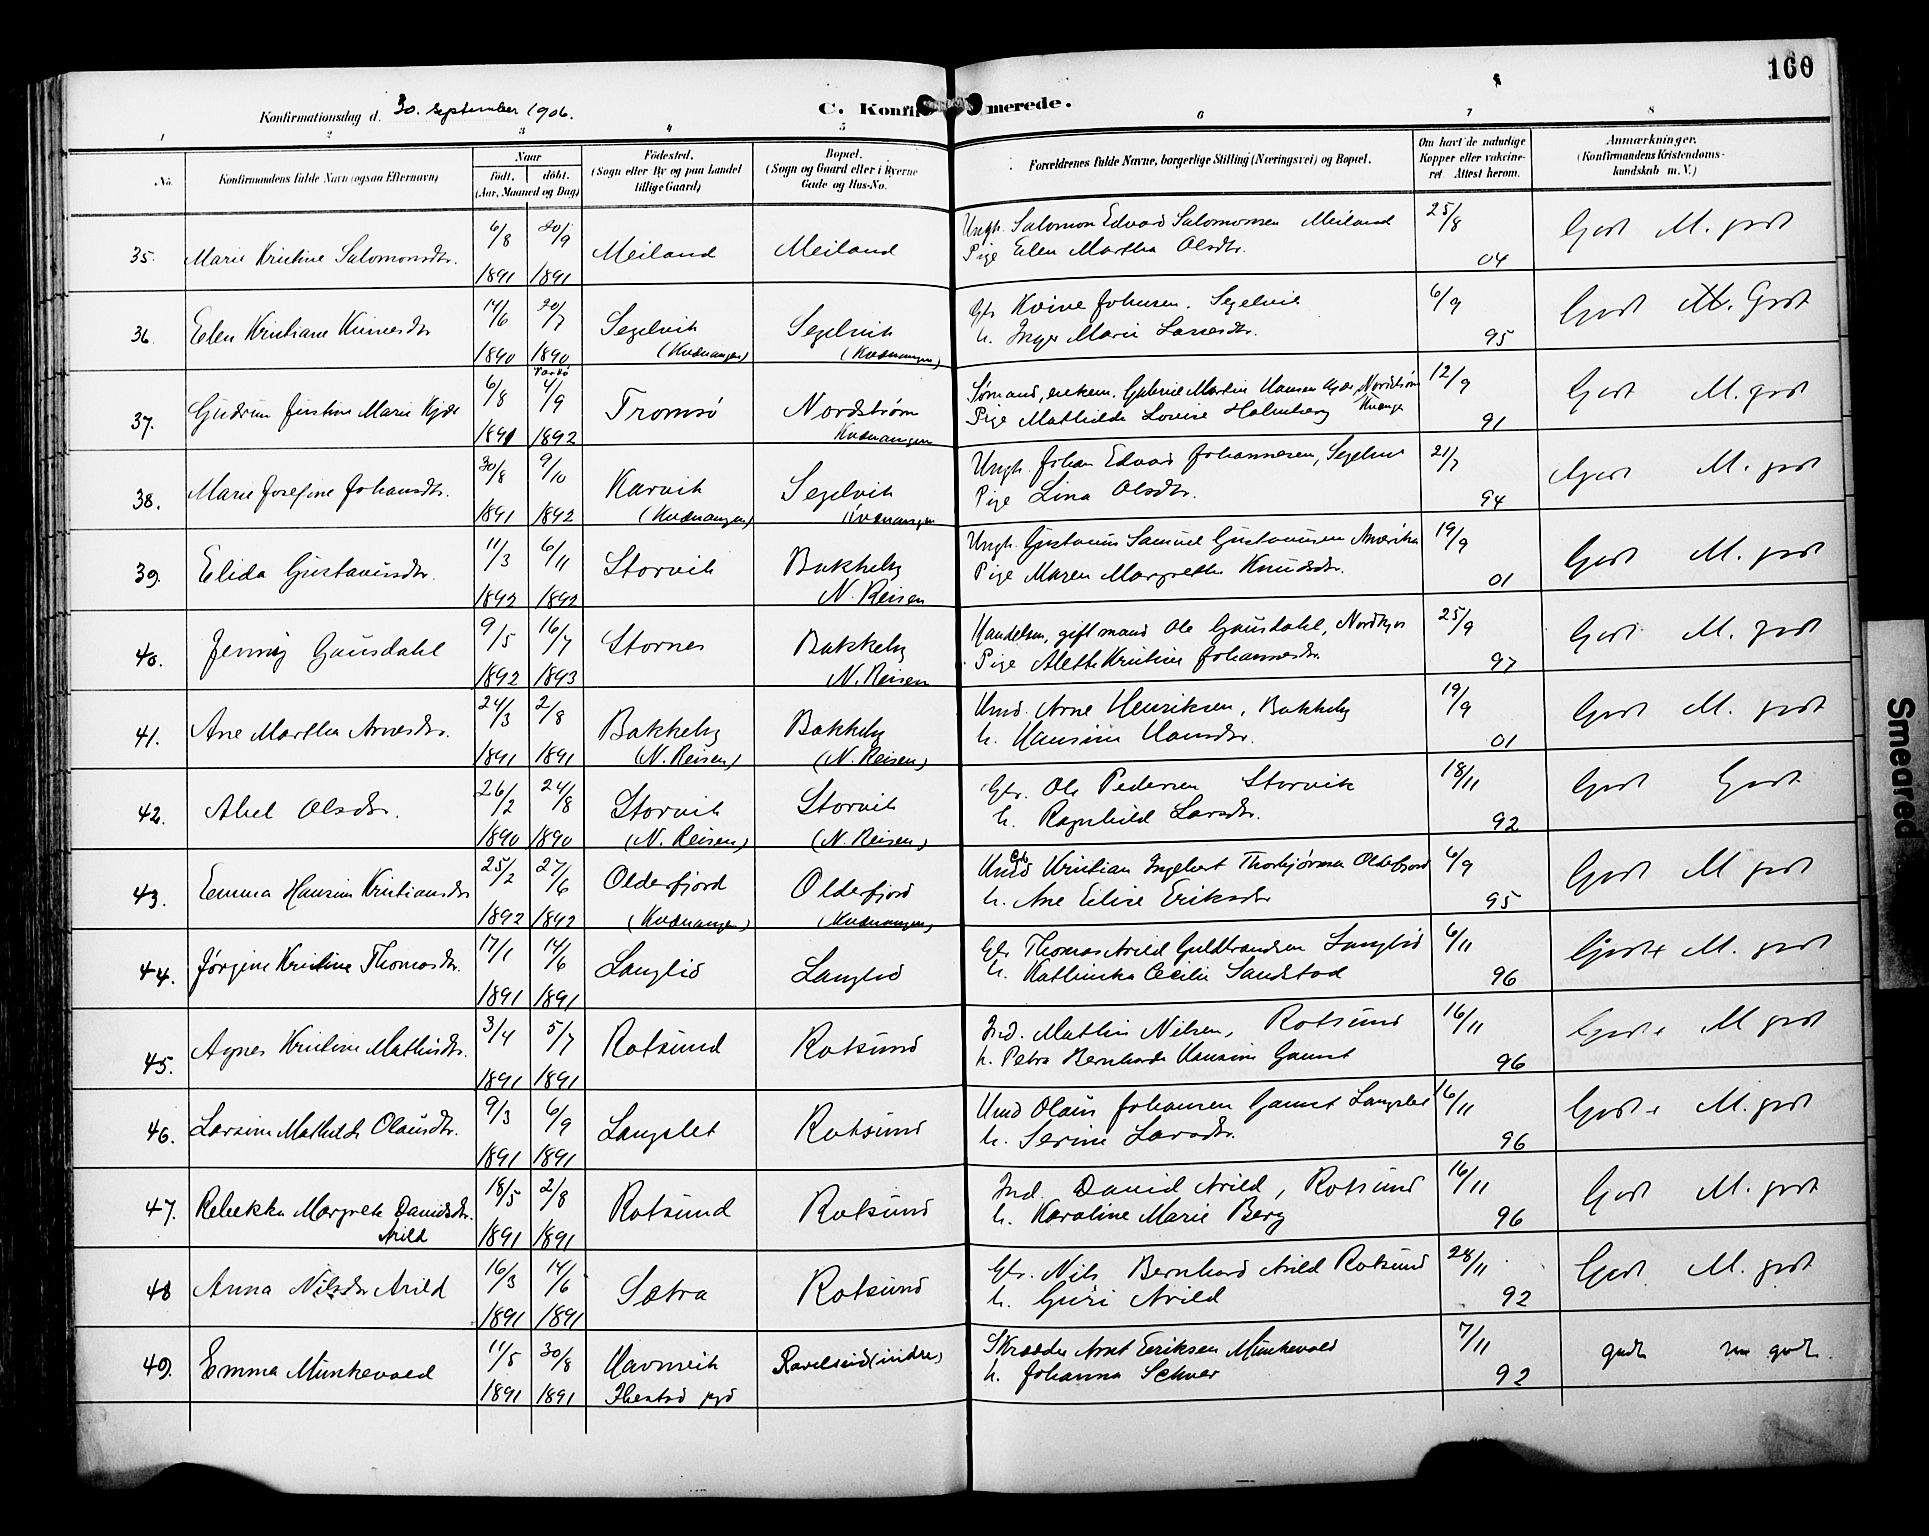 160
Konfirmationsdag d. 30. september 1906.
C. Konfirmerede.
1 2 3 4 5 6 7 8
No.
Konfirmandens fulde Navn (ogsaa Efternavn)
Naar
födt. döbt.
(Aar, Maaned og Dag)
Födested.
(Sogn eller By og paa Landet
tillige Gaard)
Bopæl.
(Sogn og Gaard efter i Byerne
Gade og Hus-No.
Forældrenes fulde Navne, borgerlige Stilling (Næringsvei) og Bopæl.
Om havt de naturlige
Kopper eller vakcine-
ret Attest herom.
Anmærkninger.
(Konfirmandens Kristendoms-
kundskab m. V.)
35. Marie Kristine Salomonsdtr. 6/8 1891 20/9 1891 Meiland Meiland
Ungk. Salomon Edvard Salomonsen Meiland
Pige Elen Martha Olsdtr.
25/8 04 Godt M. godt
36. Elen Kristiane Kvinesdtr 14/6 1890 20/7 1890 Segelvik (Kvænangen) Segelvik (Kvænangen)
Gbr Kvine Johnsen. Segelvik
h. Inger Marie Larsdtr.
6/9 95 Godt M. Godt
37. Gudrun Justine Marie Kjær 6/8 1891 Vardø 4/9 1892 Tromsø Nordstrøm Kvænangen
Sømand, enkem. Gabriel Martin Hansen Kjær, Nordstrøm
Pige Mathilde Lovise Holmberg Kvænge
12/9 91 Godt M. godt
38. Marie Josefine Johansdtr. 30/8 1891 9/10 1892 Karvik (Kvænangen) Segelvik Kvænangen
Ungk. Johan Edvard Johannesen, Segelvik
Pige Lina Olsdtr.
21/7 94 Godt M. godt
39. Elida Gustavusdtr. 11/3 1892 6/11 1892 Storvik Bakkeby N. Reisen
Ungk. Gustavus Samuel Gustavusen Amerika
Pige Maren Margrethe Knudsdtr.
19/9 01 Godt M. godt
40. Jenny Gausdahl 9/5 1892 16/7 1893 Stornes Bakkeby N. Reisen
Handelsm, gift mand Ole Gausdahl, Nordkjos
Pige Alette Kristine Johannesdtr.
25/9 97 Godt M. godt
41. Ane Martha Arnesdtr. 24/3 1891 2/8 1891 Bakkeby (N. Reisen) Bakkeby (N. Reisen)
Arne Henriksen, Bakkeby
h. Hansine Hansdtr.
19/9 01 Godt M. godt
42. Abel Olsdtr. 26/2 1890 24/8 1890 Storvik (N. Reisen) Storvik (N. Reisen)
Gbr. Ole Pedersen Storvik
h. Ragnhild Larsdtr.
18/11 92 Godt Godt
43. Emma Hansine Kristiansdtr 25/2 1892 27/6 1892 Olderfjord (Kvænangen) Olderfjord (Kvænangen)
Kristian Ingebert Thorbjørnsen Olderfjord
h. Ane Elise Eriksdtr
6/9 95 Godt M godt
44. Jørgine Kristine Thomasdtr. 17/1 1891 14/6 1891 Langlid Langlid
Gbr Thomas Arild Guldbrandsen Langlid
h. Kathinka Cecilie Sandstad
6/11 96 Godt + M. godt
45. Agnes Kristine Mathisdtr. 3/4 1891 5/7 1891 Rotsund Rotsund
Ind. Mathis Nilsen, Rotsund
h. Petra Bernharda Hansine Gamst
16/11 96 Godt + M godt
46. Larsine Mathilde Olausdtr. 9/3 1891 6/9 1891 Langslet Rotsund
Olaus Johansen Gamst Langslet
h. Serine Larsdtr.
16/11 96 Godt + M. godt
47. Rebekka Margrete Davidsdtr. Arild 18/5 1891 2/8 1891 Rotsund Rotsund
Ind. David Arild, Rotsund
h. Karoline Marie Berg
16/11 96 Godt M. godt
48 Anna Nilsdtr Arild 16/3 1891 14/6 1891 Sætra Rotsund
Gbr. Nils Bernhard Arild Rotsund
h. Guri Arild
28/11 92 Godt M. godt
49. Emma Munkevold 11/5 1891 30/8 1891 Havnvik Ibestad pgd Ravelseid (indre)
Skrædder Arnt Eriksen Munkevold
h. Johanna
7/11 92 godt m godt.
Smeared